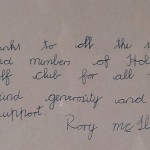 anks to all the s
nd members of Hol
lf club for all
kind generosity and
support.
Rory mc Il